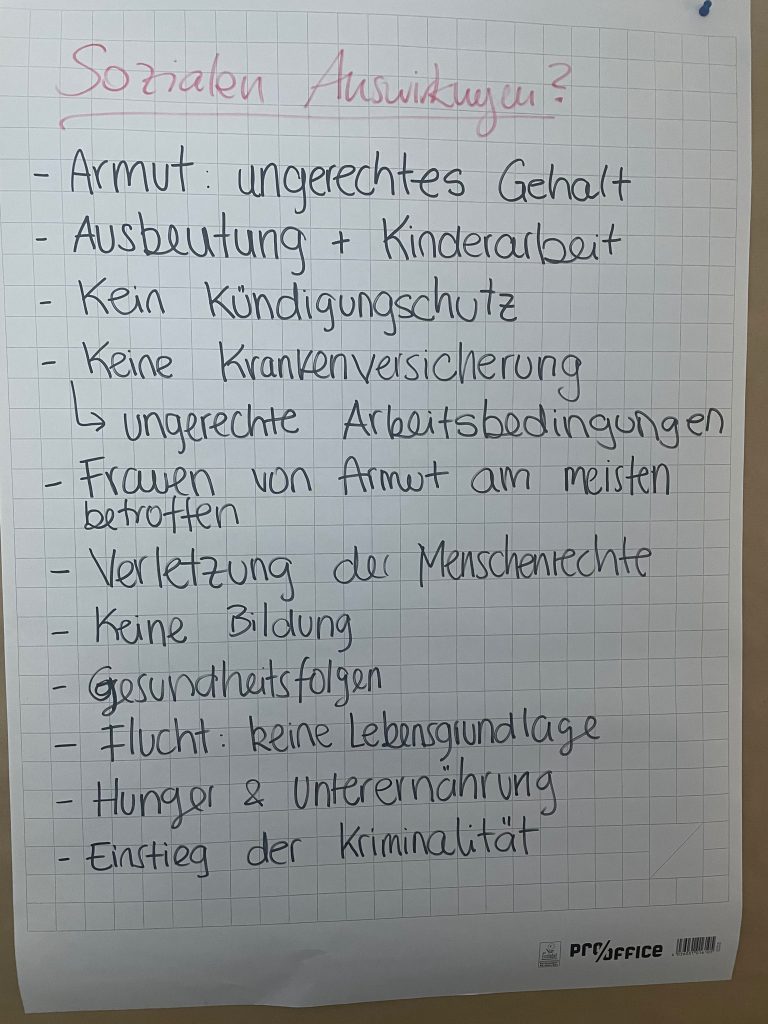 Sozialen Auswirkungen?
- Armut: ungerechtes Gehalt
- Ausbeutung + Kinderarbeit
- Kein Kündigungschutz
- Keine Krankenversicherung
↳ ungerechte Arbeitsbedingungen
- Frauen von Armut am meisten
betroffen
- Verletzung der Menschenrechte
- Keine Bildung
- Gesundheitsfolgen
- Flucht: keine Lebensgrundlage
- Hunger & Unterernährung
- Einstieg der Kriminalität
PRO/OFFICE